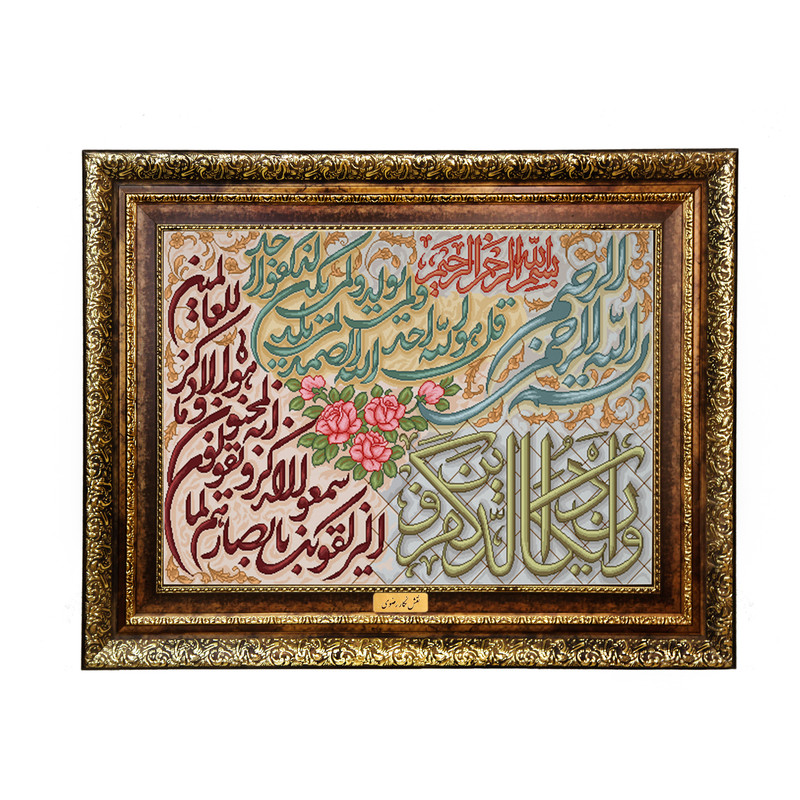 بسم الله الرحمن الرحیم
بسم الله الرحمن الرحیم
قل هو الله احد الله الصمد لم یلد
ولم یولد ولم یکن له کفوا احد
وان یکاد الذین کفروا
لیزلقونک بابصارهم لما
سمعوا الذکر و یقولون
انه لمجنون و ما
هو الا ذکر
للعالمین
نقش نگار رضوی